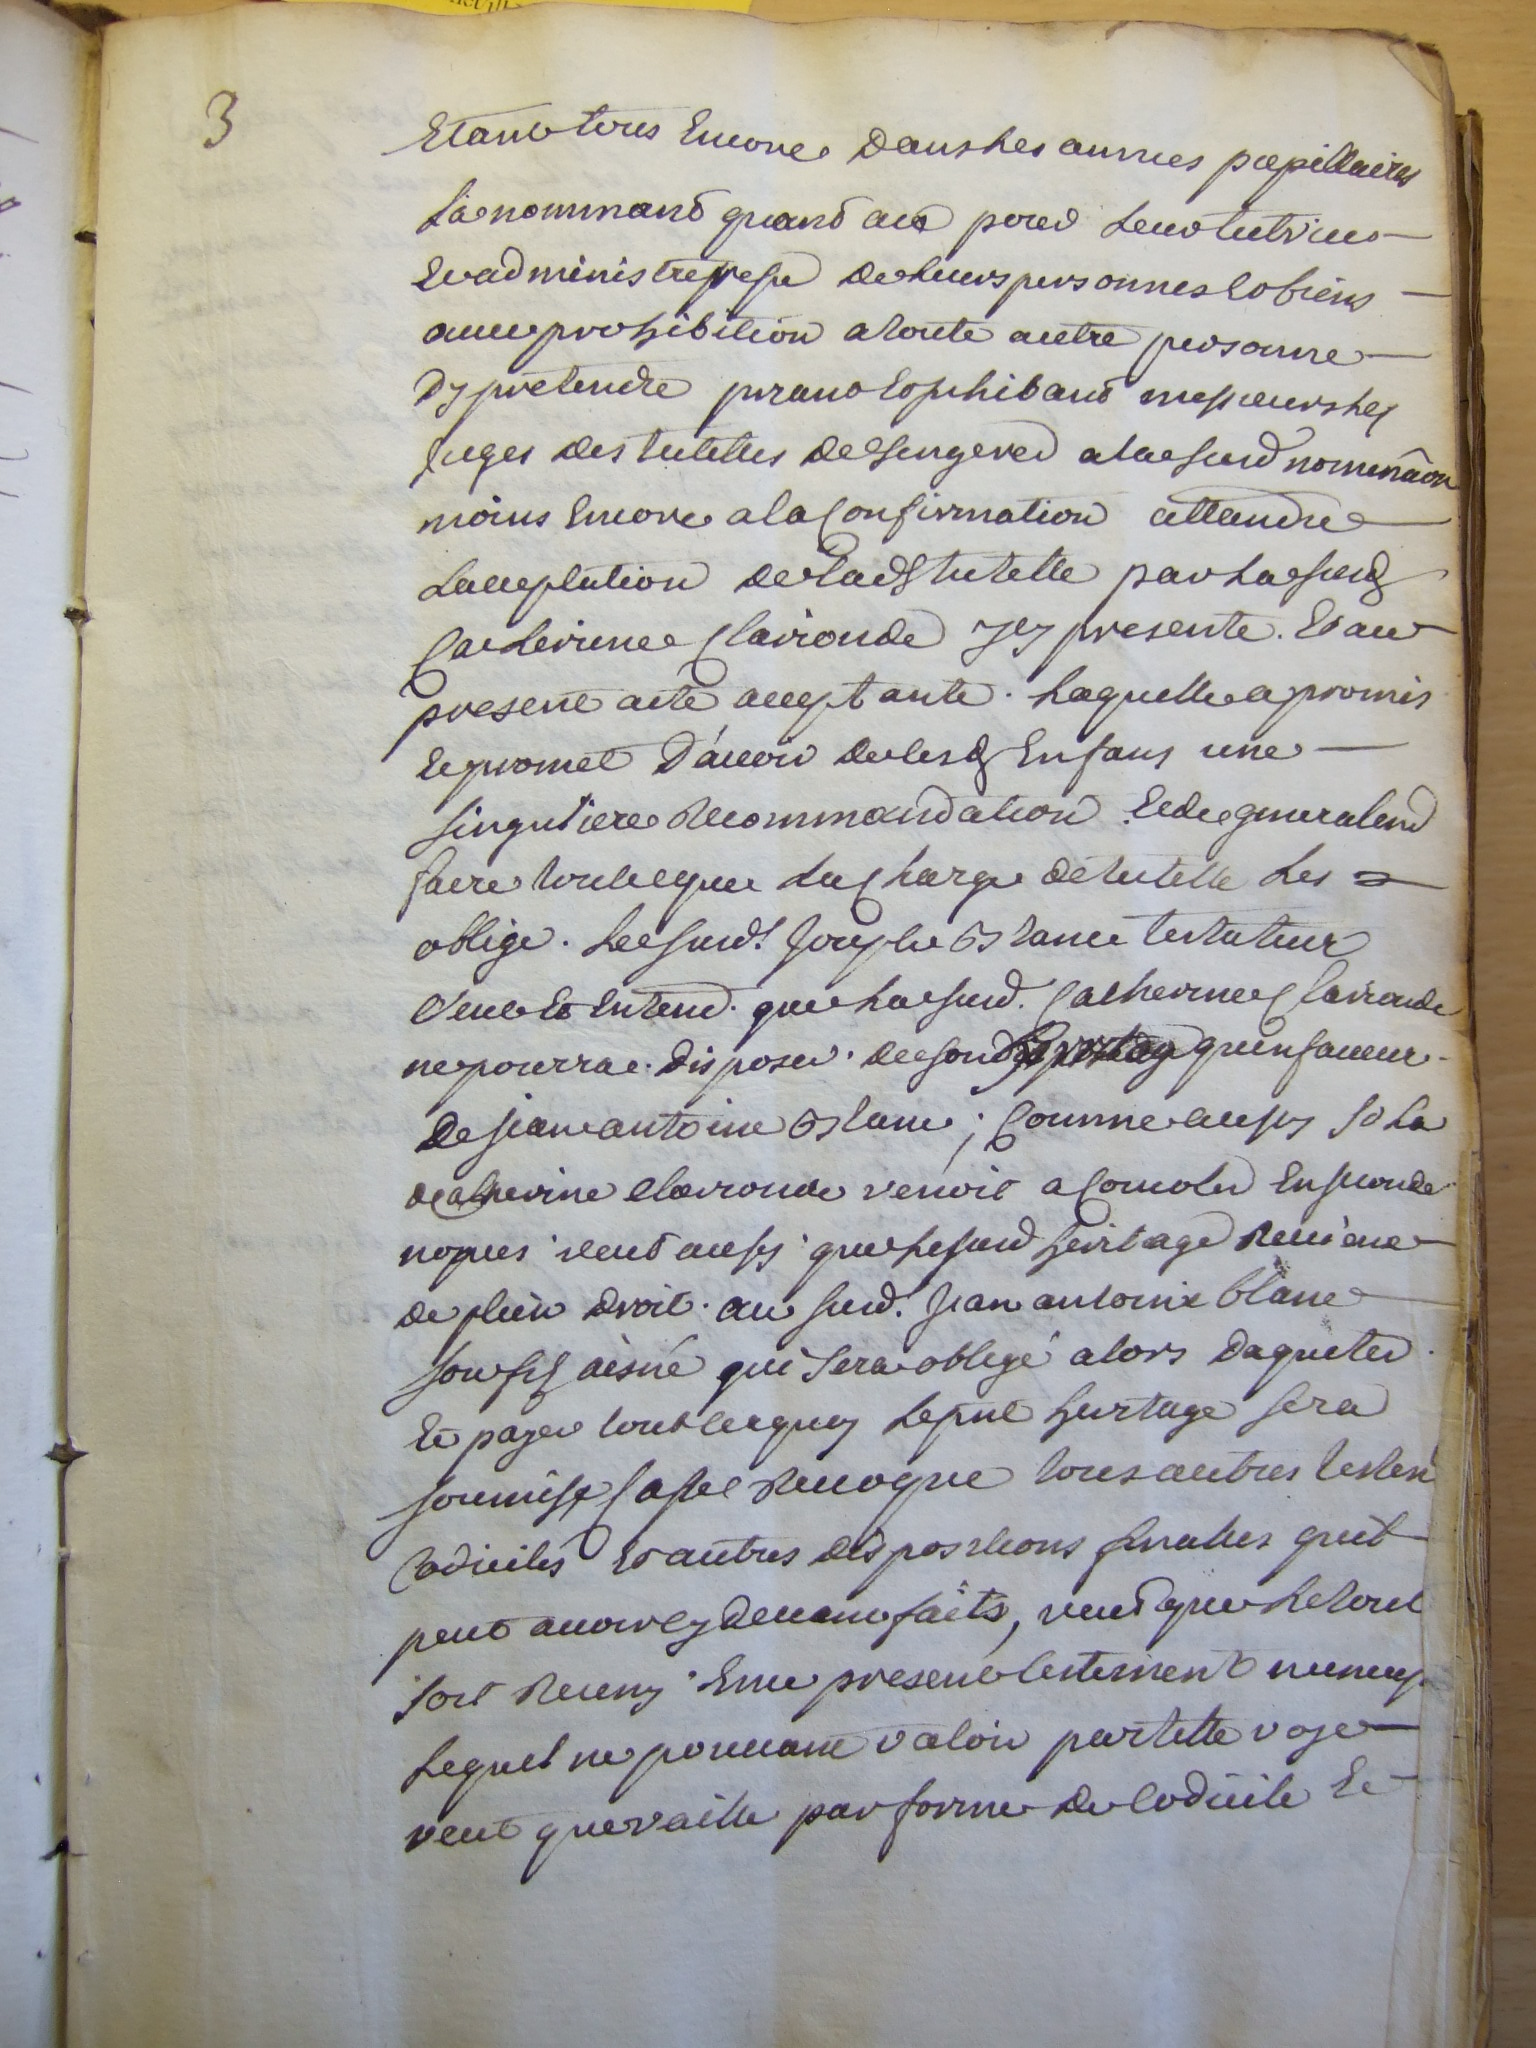 3
Etant tous Encore dans les annees pupillaires
La nommant quand aux pour leur tutrice
Et administreresse de leurs personnes Et biens
avec prohibition a toute autre personne
dy pretendre priant Et prohibant messieurs les
Juges des tutelles de singerer a la susd nominaon
moins Encore a la Confirmation attandre
Lacceptation de lad tutelle par la susd
Catherinne Clarionde ycy presente. Et au
present acte acceptante. Laquelle a promis
Et promet d'avoir desd Enfans une
singuliere Recommandation Et de generalem
faire tout ce que la Charge de tutelle les
oblige. Le susd. Joseph Blanc testateur
Veut Et Entend. que la susd. Catherine Clarionde
ne pourra. disposer. de son quen faveur
de jean antoine Blanc; Comme aussy Si la
Catherine Clarionde venoit a Convoler En seconde
nopces veut aussy que le susd heritage Revienne
de plein droit. au susd. Jean antoine blanc
son fils aisné qui sera obligé alors daquiter
Et payer tout ce a quoy le pnt heritage sera
soumis Casse Revoque tous autres testem
Codiciles Et autres dispositions finalles quil
peut avoir cy devant faits, veut que le tout
soit Reduit En ce present testement nuncup
Lequel ne pouvant valoir par telle voye
veut que vaille par forme de Codicile Et